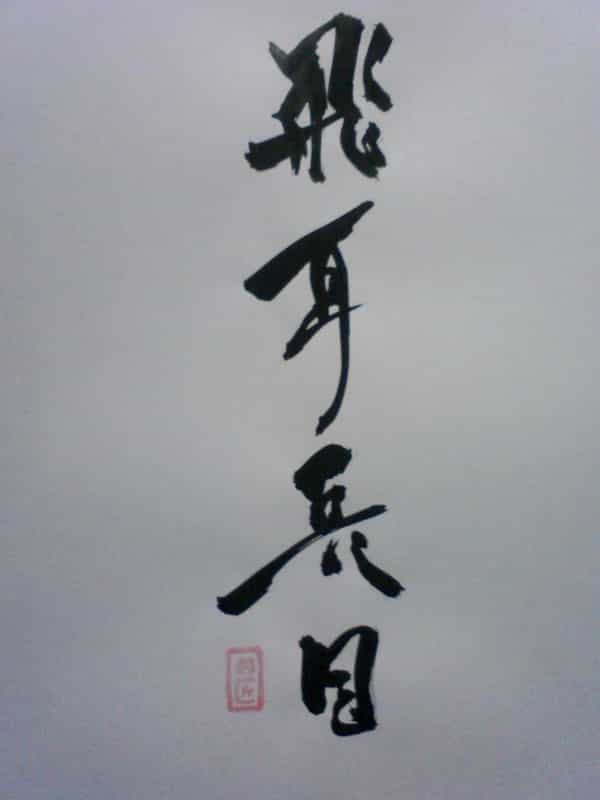 飛耳長目